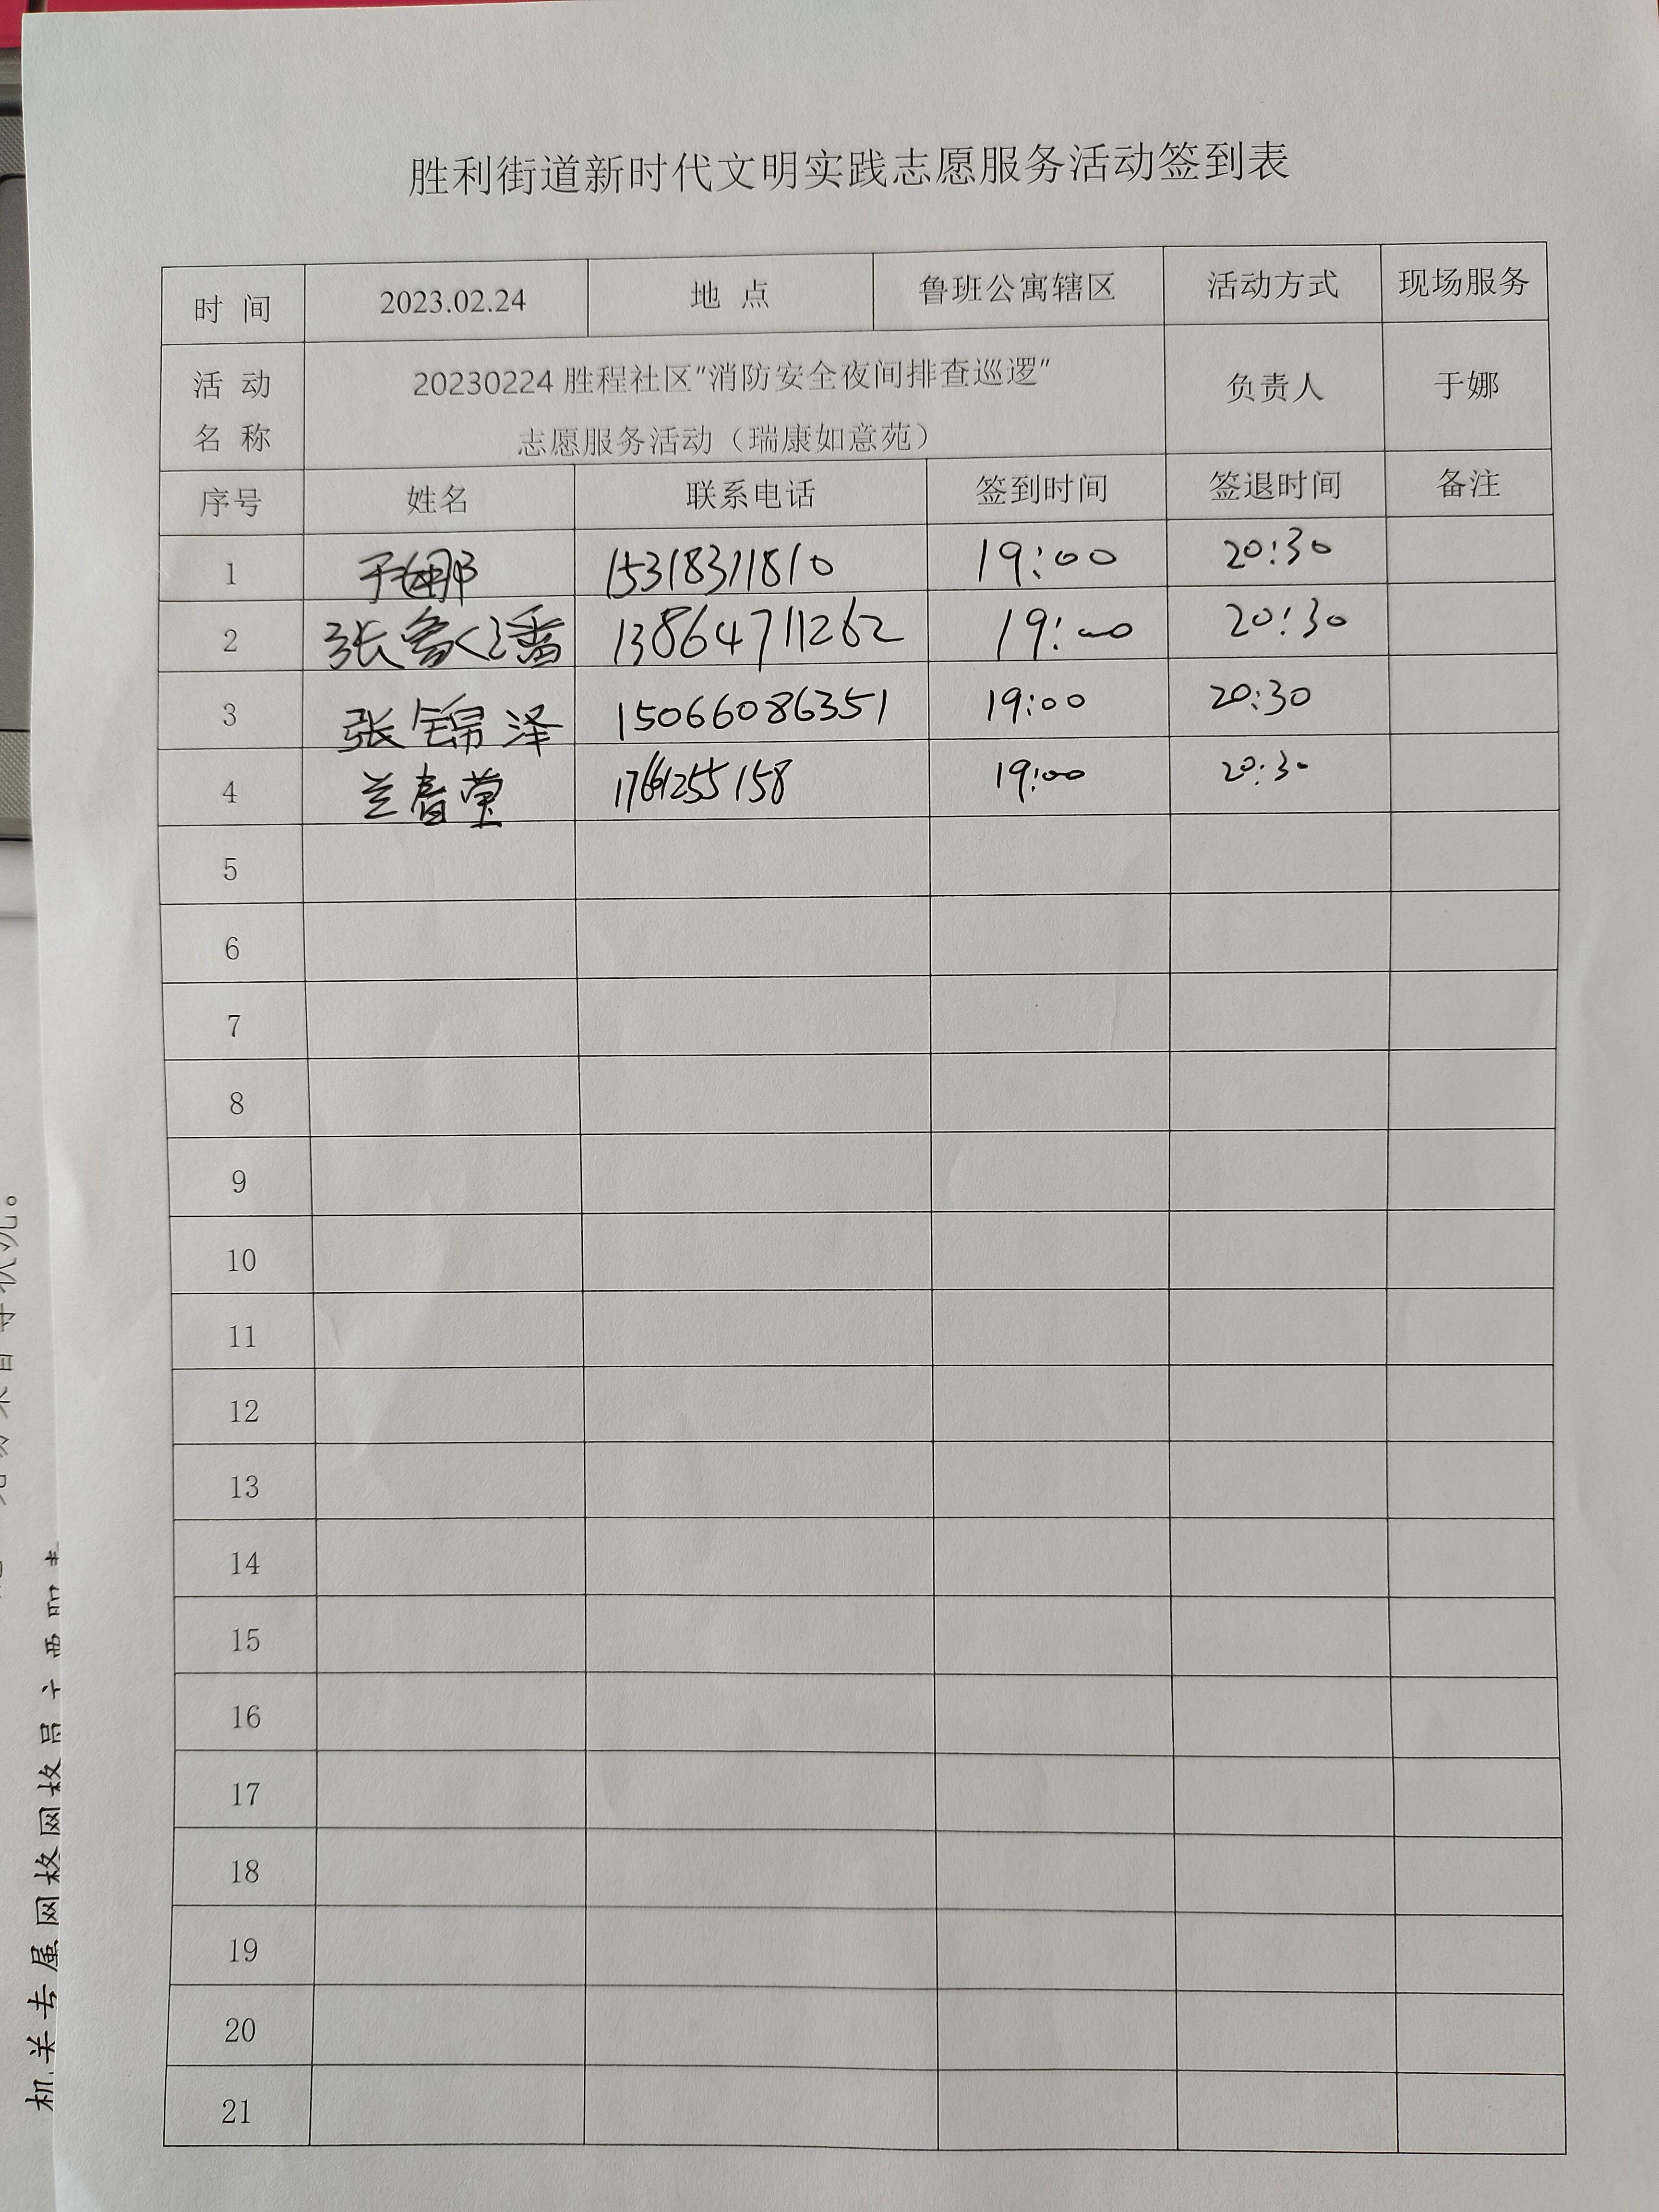 胜利街道新时代文明实践志愿服务活动签到表
时 间 2023.02.24 地 点 鲁班公寓辖区 活动方式 现场服务
活 动 名 称 20230224 胜程社区“消防安全夜间排查巡逻” 负责人 于娜
志愿服务活动（瑞康如意苑）
序号 姓名 联系电话 签到时间 签退时间 备注
1 于娜 15318311810 19:00 20:30
2 张 13864711262 19:00 20:30
3 张锦泽 15066086351 19:00 20:30
4 兰春莹 19:00 20:30
5
6
7
8
9
10
11
12
13
14
15
16
17
18
19
20
21
机关专属网格网格员